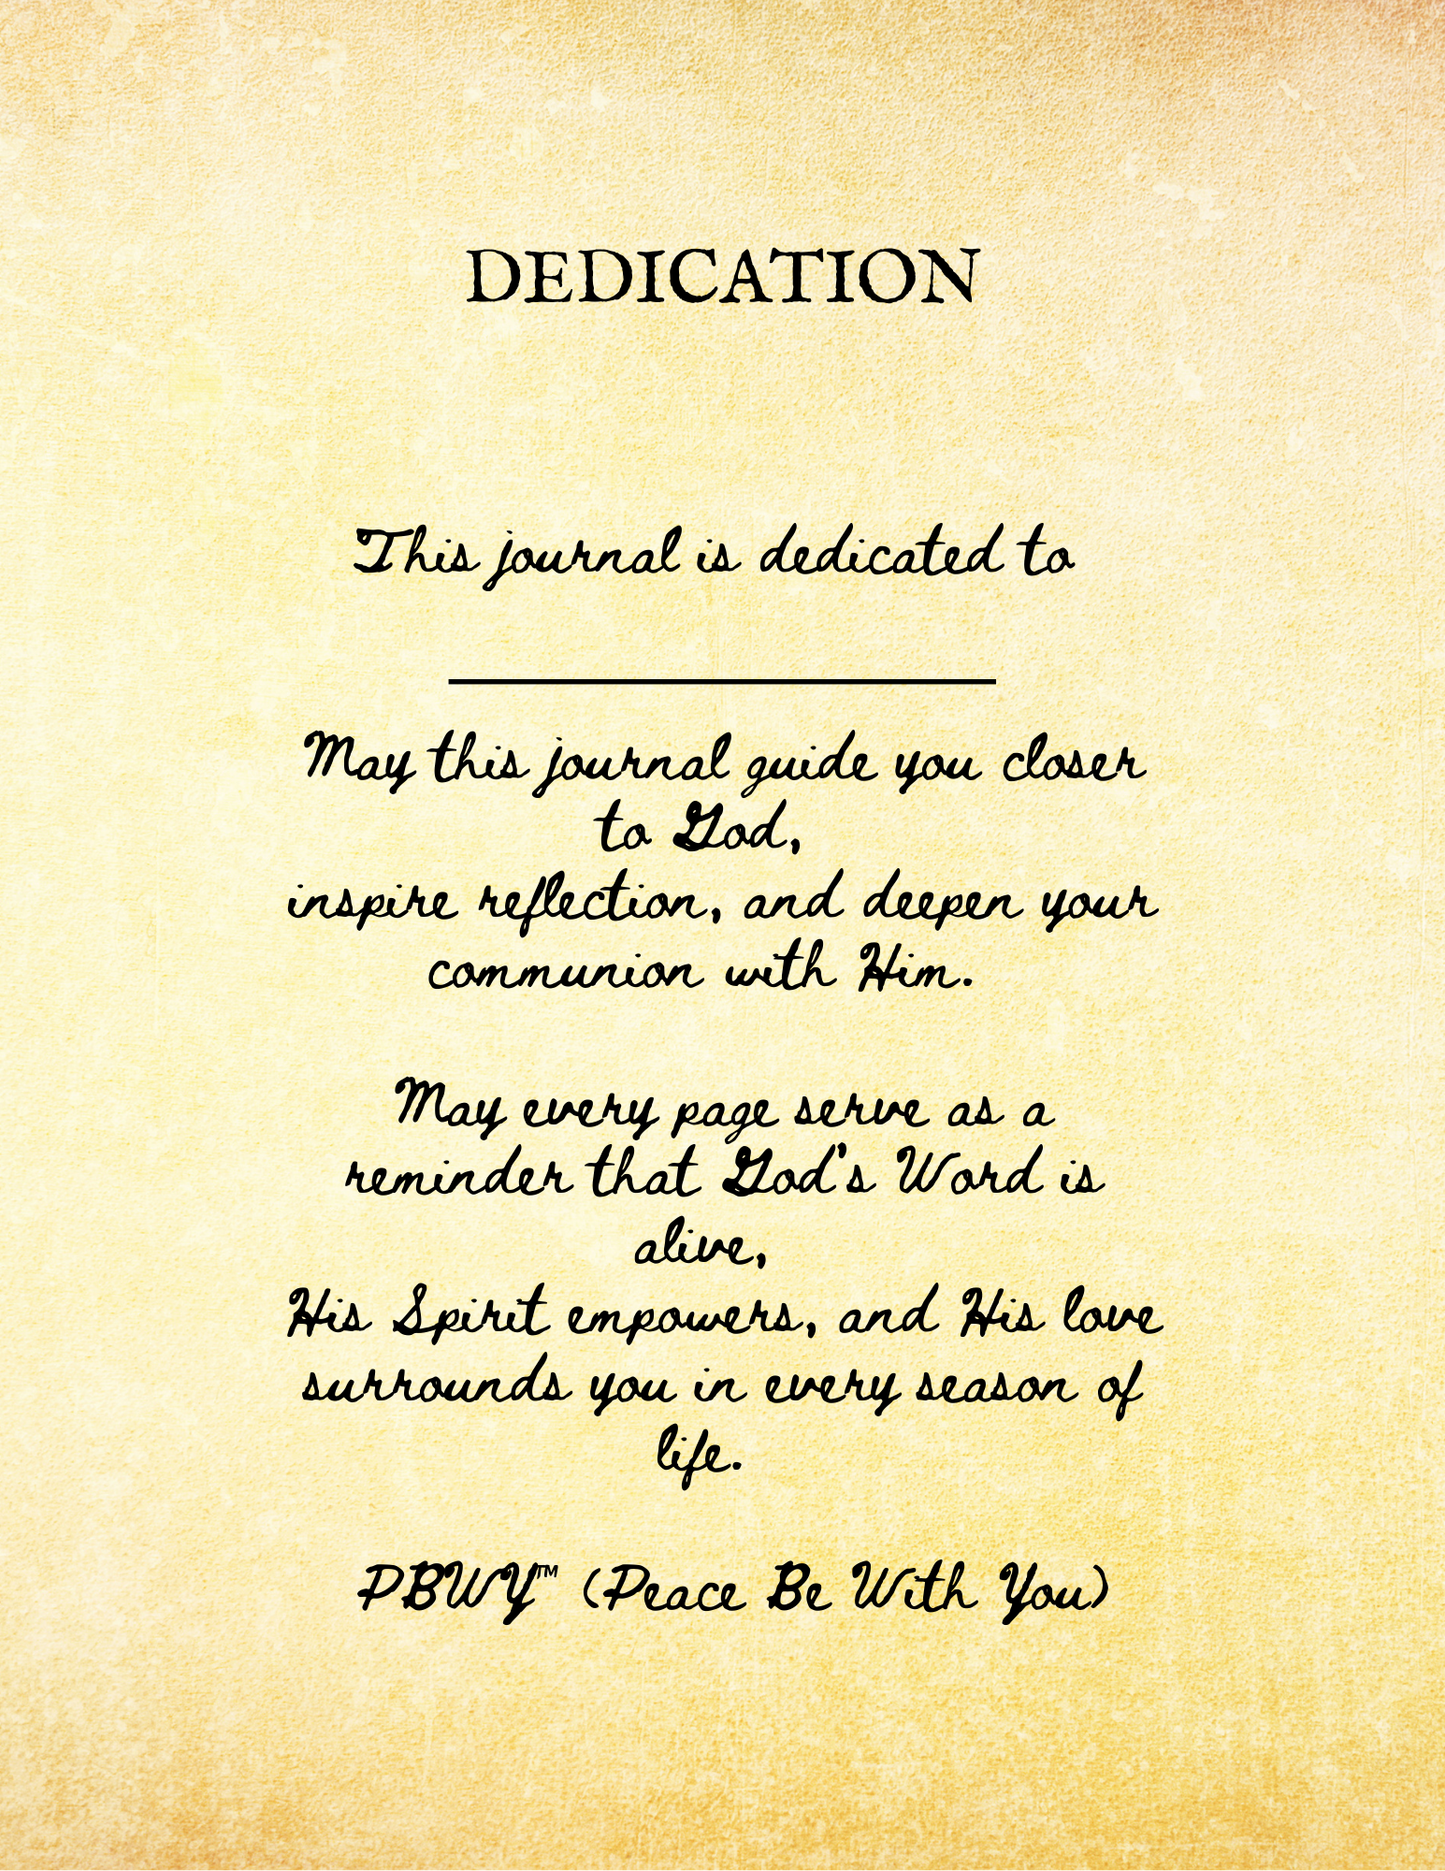 DEDICATION
This journal is dedicated to
May this journal guide you closer
to God,
inspire reflection, and deepen your
communion with Him.
May every page serve as a
reminder that God's Word is
alive,
His Spirit empowers, and His love
surrounds you in every season of
life.
PBWY™ (Peace Be With You)